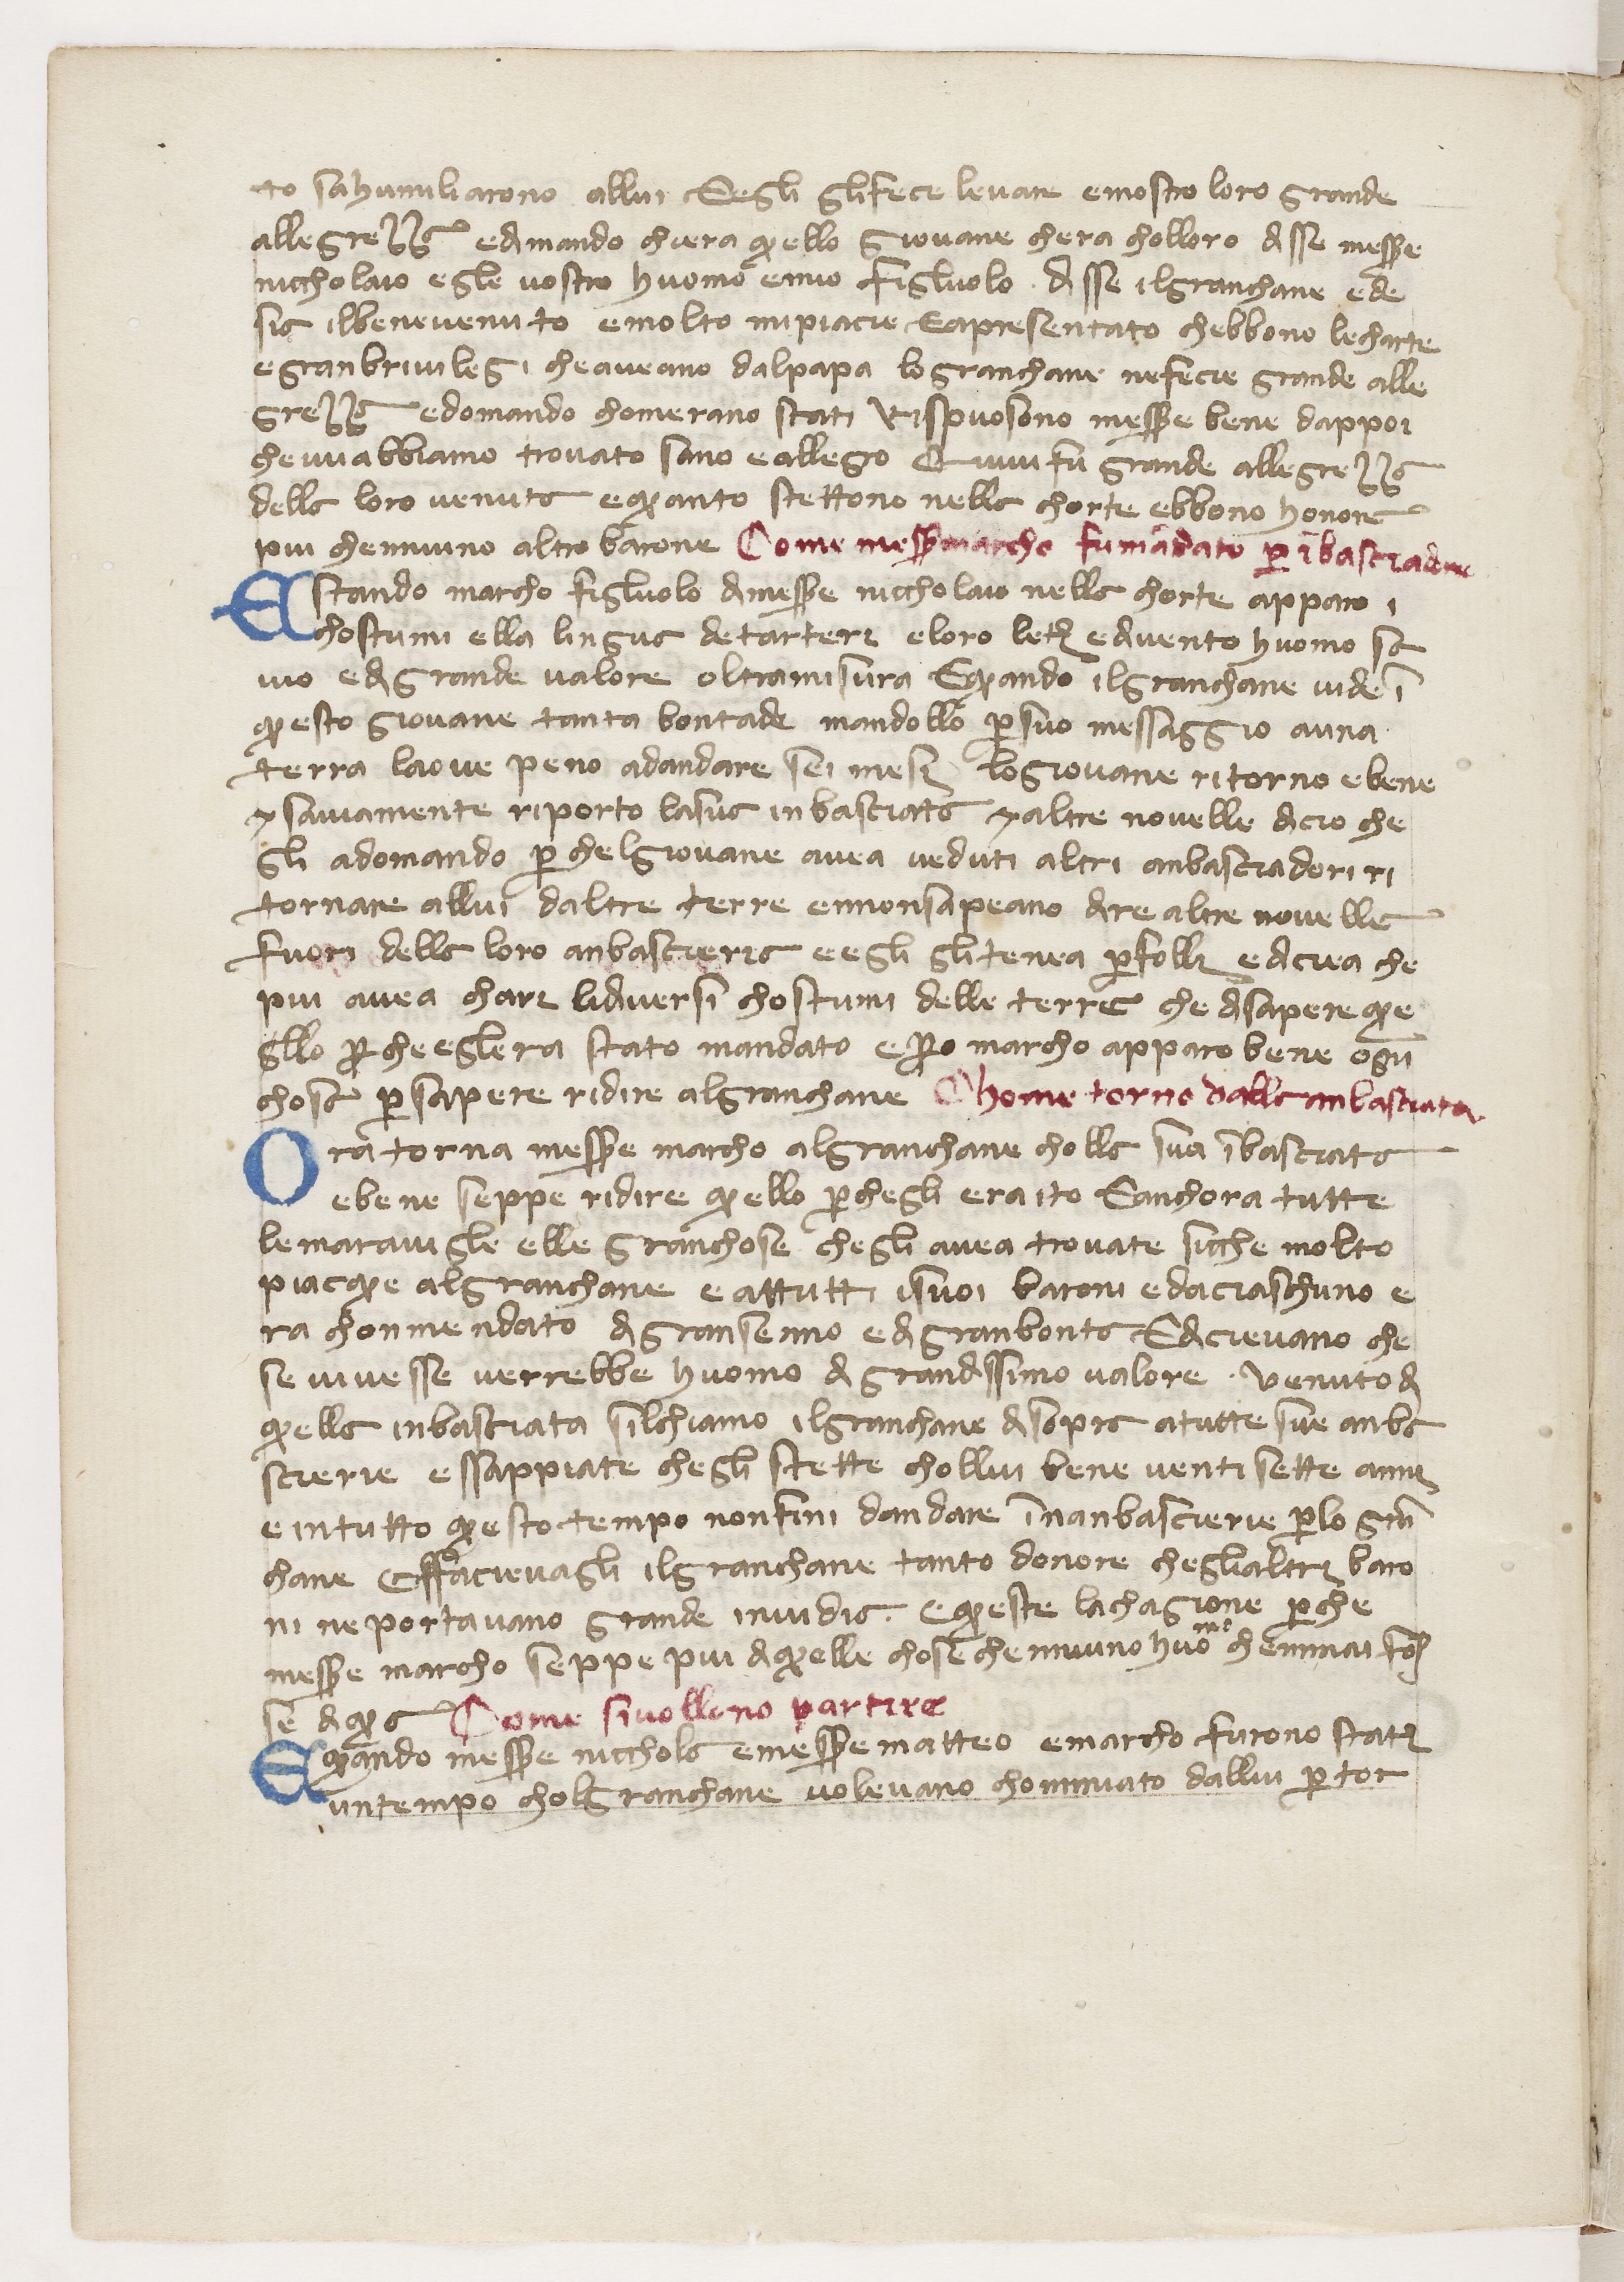 to sahumiliarono allui Eegli glifece levare emostro loro grande
allegrezza edimando chiera quello giovane chera cholloro disse messere
niccholaio egle vostro huomo emio figluolo · disse ilgranchane ede
sia ilbenevenuto emolto mipiacie Eapresentato chebbono lecharte
egranbrivilegi cheaveano dalpapa lo granchane nefecie grande alle
grezza edomando chomerano stati Rispuosono messere bene dappoi
chevvabbiamo trovato sano eallegro Quivi fu grande allegrezza
della loro venuta equanto stettono nella chorte ebbono honore
piu cheniuno altro barone Come messer marcho fu mādato p ībasciadore
Estando marcho figluolo dimessere niccholaio nella chorte apparo i
chostumi ella lingua detarteri eloro lett edivento huomo sa
vio edigrande valore oltramisura Equando ilgranchane vide ī
questo giovane tanta bontade mandollo p suo messaggio auna
terra laove peno adandare sei mesi logiovane ritorno ebene
z saviamente riporto lasua inbasciata z altre novelle dicio che
gli adomando p chelgiovane avea veduti altri anbasciadori ri
tornare allui daltre terre ennonsapeano dire altre novelle
fuori della loro anbascieria eegli glitenea p folli ediciea che
piu avea chari lidiversi chostumi delle terre che disapere que
gllo p che eglera stato mandato ep o marcho apparo bene ogni
chosa p sapere ridire algranchane Chome torno dalla anbasciata
Ora torna messere marcho algranchane cholla sua ībasciata
ebene seppe ridire quello p chegli era ito Eanchora tutte
lemaravigle elle granchose chegli avea trovate sicche molto
piacque algranchane eattutti isuoi baroni edaciaschuno e
ra chonmendato di gransenno edi granbonta Edicievano che
se vivesse verrebbe huomo di grandissimo valore · venuto di
quella inbasciata silchiamo ilgranchane disopra atutte sue anba
scierie essappiate chegli stette chollui bene venti sette anni
eintutto questo tempo nonfini dandare īnanbascierie p lo gran
chane Effacievagli ilgranchane tanto donore cheglialtri baro
ni neportavano grande invidia · Equeste lachagione p che
messere marcho seppe piu diquelle chose cheniuno huomo chennai fos
se diqua Come sivollono partire
Equando messere niccholo emessere matteo emarcho furono stati
untempo cholgranchane volevano chommiato dallui p tor